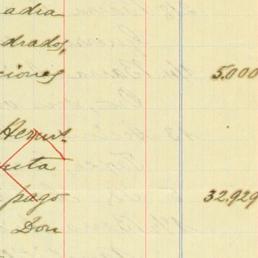 adia
drados,
ciones 5.000
Hernt.
nta
pago 32.929
Don